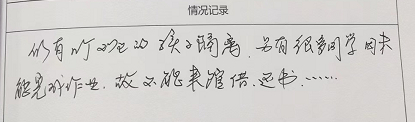 情况记录
仍有 的 孩子隔离,另有很多同学因未
能完成作业,故不能来馆借、还书……